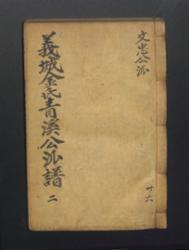 文忠公派
義城金氏青溪公派譜
二
廿六